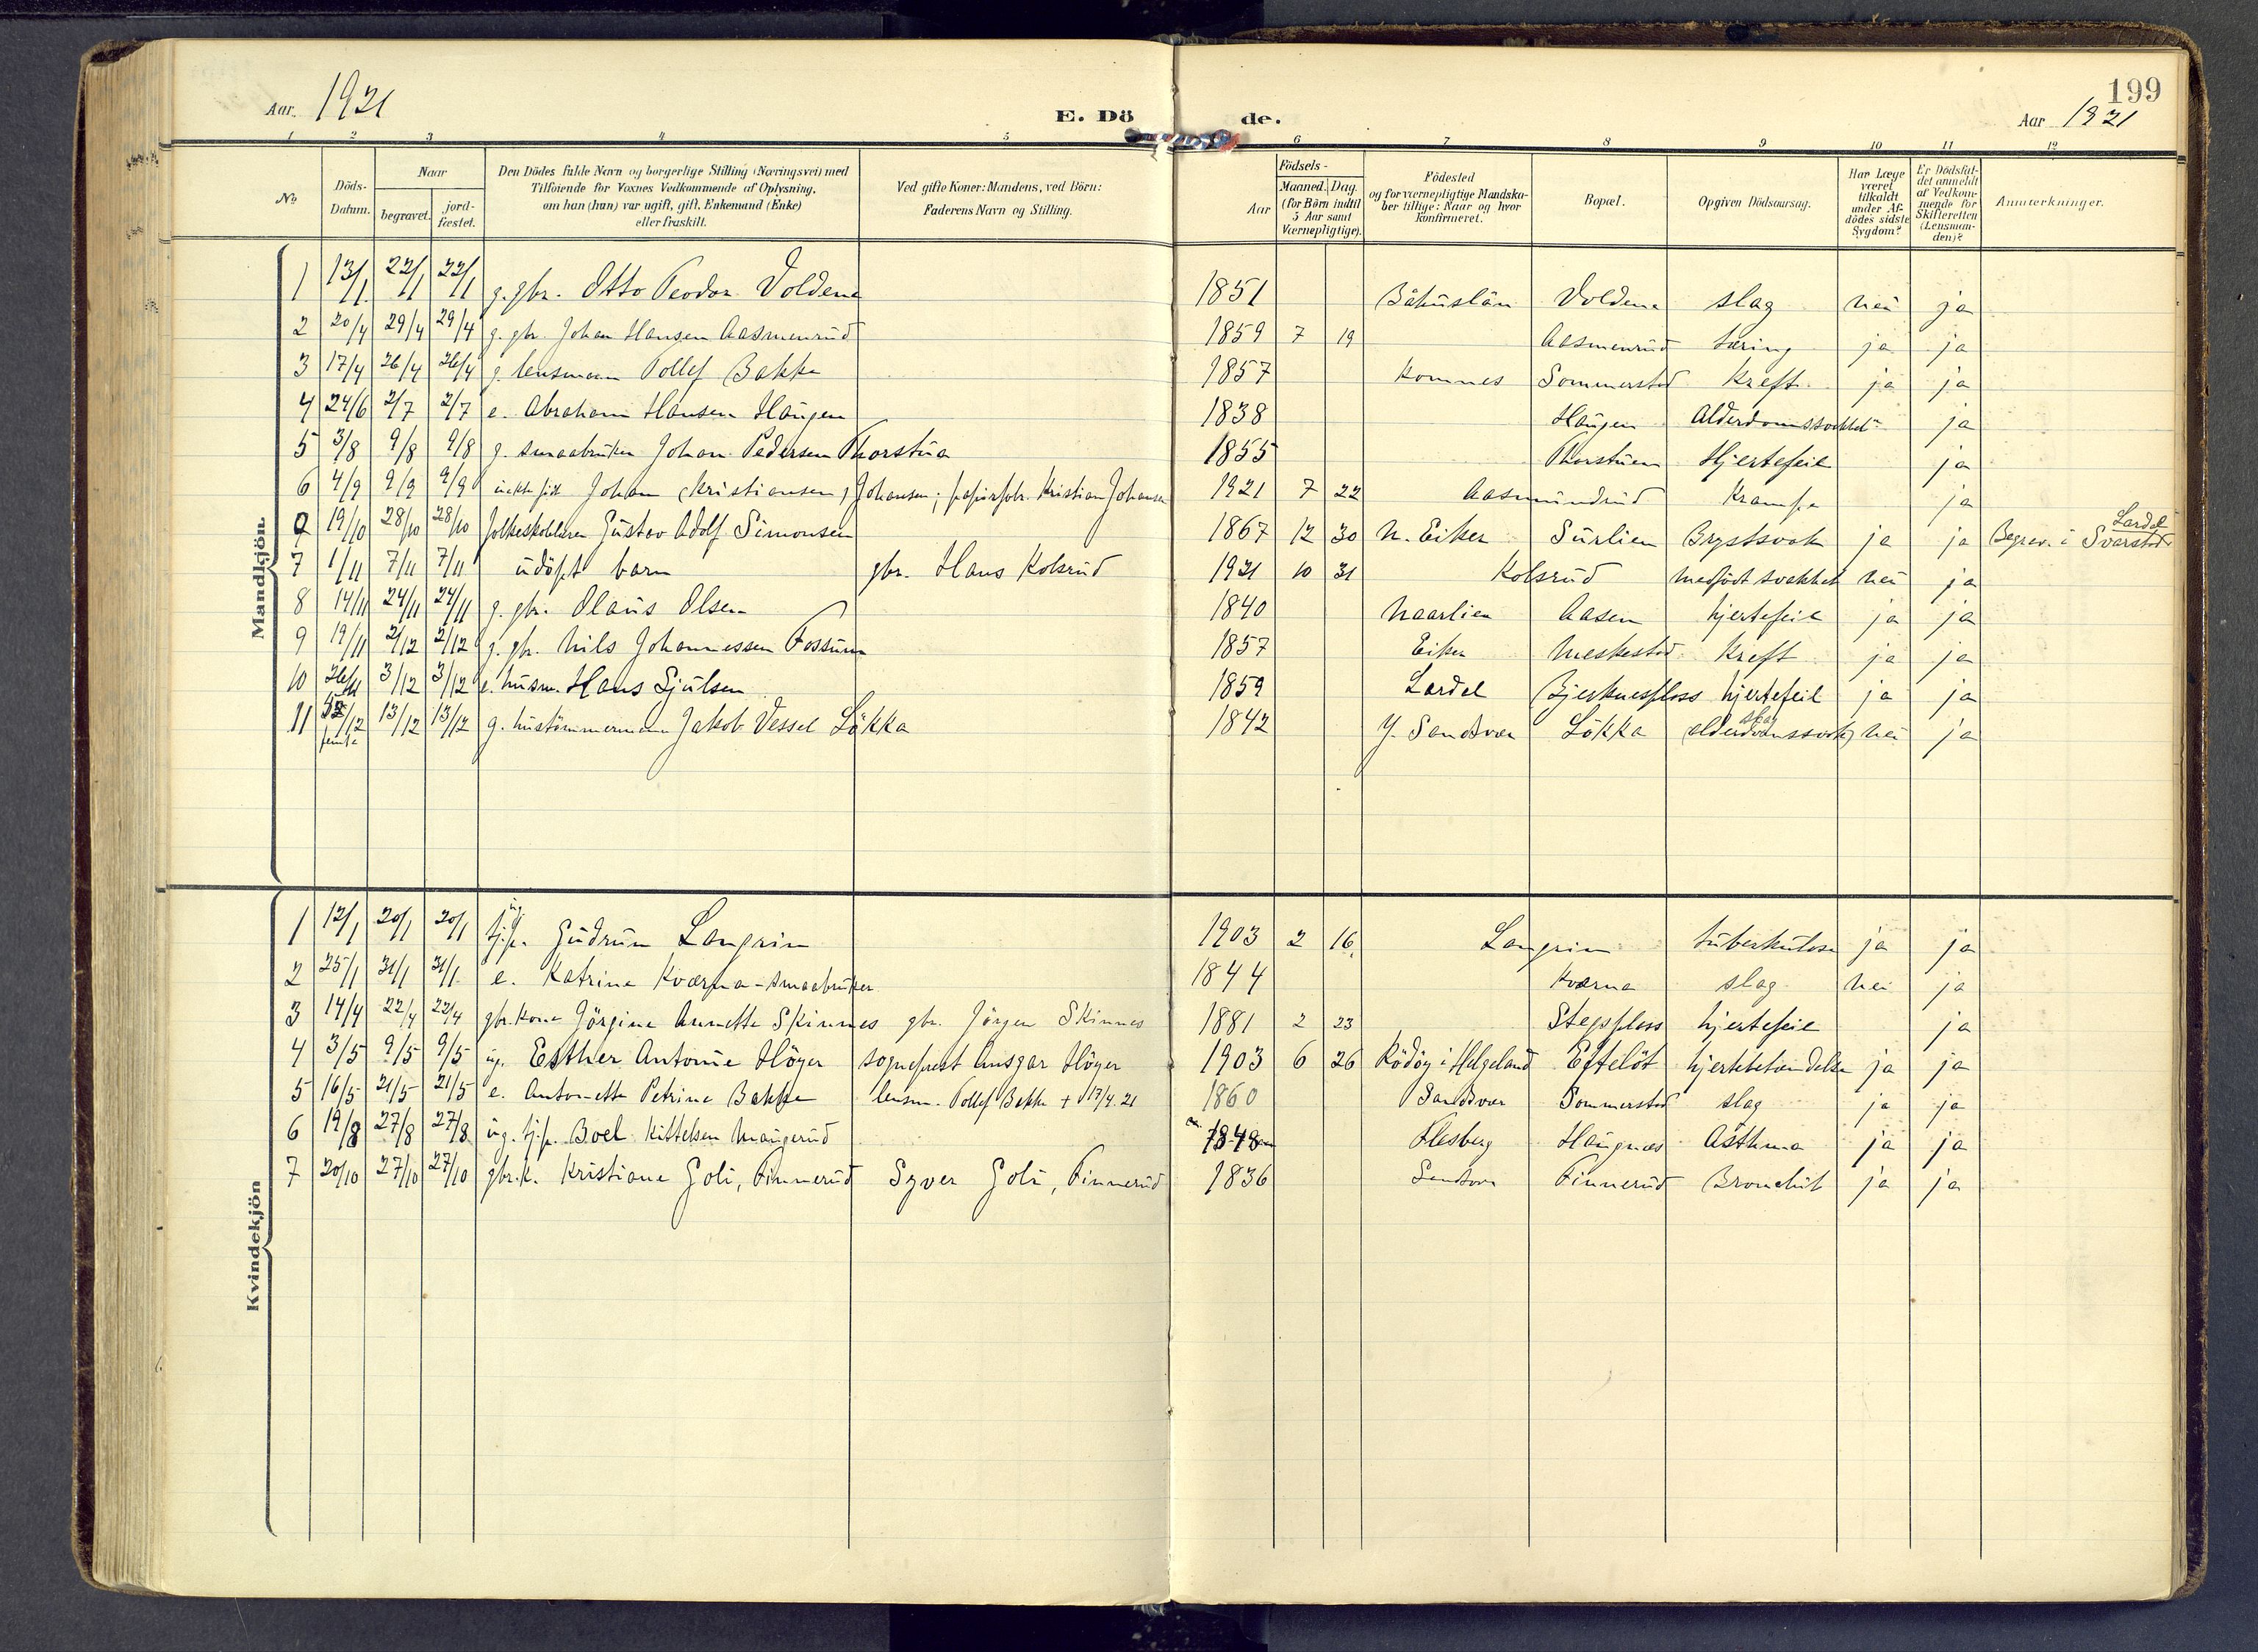 199
Aar. 1921 E. Dö de. Aar 1921
1 2 3 4 5 6 7 8 9 10 11 12
№ Döds-Datum. Naar begravet. jord-fæstet. Den Dödes fulde Navn og borgerlige Stilling (Næringsvei) med Tilföiende for Voxnes Vedkommende af Oplysning, om han (hun) var ugift, gift, Enkemand (Enke) eller fraskilt. Ved gifte Koner: Mandens, ved Börn: Faderens Navn og Stilling. Födsels- Aar Maaned. Dag. (for Börn indtil 5 Aar samt Værnepligtige). Födested og for værnepligtige Mandskaber tillige: Naar og hvor konfirmeret. Bopæl. Opgiven Dödsaarsag. Har Læge været tilkaldt under Afdödes sidste Sygdom? Er Dödsfaldet anmeldt af Vedkommende for Skifteretten (Lensmanden)? Anmærkninger.
Mandkjön.
1 13/1 22/1 22/1 g. gbr. Otto Teodor Voldene 1851 Båhuslän Voldene slag nei ja
2 20/4 29/4 29/4 g. gbr. Johan Hansen Aasmenrud 1859 7 19 Aasmenrud tæring ja ja
3 17/4 26/4 26/4 g. lensmann Tollef Bakke 1857 Komnes Sommerstad Kreft ja ja
4 24/6 2/7 2/7 e. Abraham Hansen Haugen 1838 Haugen Alderdomssvakhet ja
5 3/8 9/8 9/8 g. smaabruker Johan Pedersen Thorstua 1855 Thorstuen Hjertefeil ja
6 4/9 9/9 9/9 Johan Kristiansen, Johansen; papirfabr. Kristian Johansen 1921 7 22 Aasmundrud Krampe ja
0 19/10 28/10 28/10 folkeskolelærer Gustav Adolf Simonsen 1867 12 30 N. Eiker Surlien Brystsvak ja ja Begrav. i Svarstad Lardal
7 1/11 7/11 7/11 udöpt barn gbr. Hans Kolsrud 1921 10 31 Kolsrud medfödt svakhet nei ja
8 14/11 24/11 24/11 g. gbr. Olaus Olsen 1840 Naarlien Aasen hjertefeil ja ja
9 19/11 2/12 2/12 g. gbr. Nils Johannessen Fossum 1857 Eiker Meskestad Kreft ja ja
10 26/11 3/12 3/12 e. husm. Hans Gjulsen 1859 Lardal Bjerknesplass hjertefeil ja ja
11 5/12 femte 13/12 13/12 g. hustömmermann Jakob Vessel Lökka 1842 Y. Sandsvær Lökka slag (alderdomssvak) nei ja
Kvindekjön
1 12/1 20/1 20/1 ug. tjp. Gudrun Langrin 1903 2 16 Langrin tuberkulose ja ja
2 25/1 31/1 31/1 e. Katrine Kværna - smaabruker 1844 Kværna slag nei ja
3 14/4 22/4 22/4 gbr.kone Jörgine Annette Skinnes gbr. Jörgen Skinnes 1881 2 23 Stegsplass hjertefeil ja
4 3/5 9/5 9/5 ug. Esther Antonie Höyer sogneprest Ansgar Höyer 1903 6 26 Rödöy i Helgeland Eftelöt hjertebetændelse ja ja
5 16/5 21/5 21/5 e. Antonette Petrine Bakke lensm. Tollef Bakke + 17/4.21 1860 Sandsvær Sommerstad slag ja ja
6 19/8 27/8 27/8 ug. tjp. Boel Kittelsen Maugerud 1848 Flesberg Haugnæs Asthma ja ja
7 20/10 27/10 27/10 gbr.k. Kristiane Goli, Finnerud Syver Goli, Finnerud 1836 Sandsvær Finnerud Bronchit ja ja